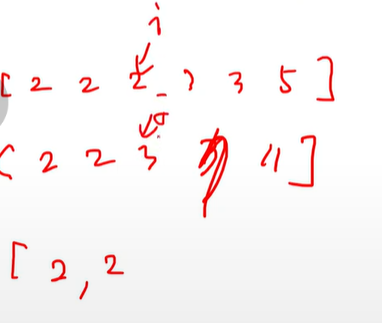 i
[ 2 2 2 3 3 5 ]
j
[ 2 2 3 11 ]
[ 2 , 2